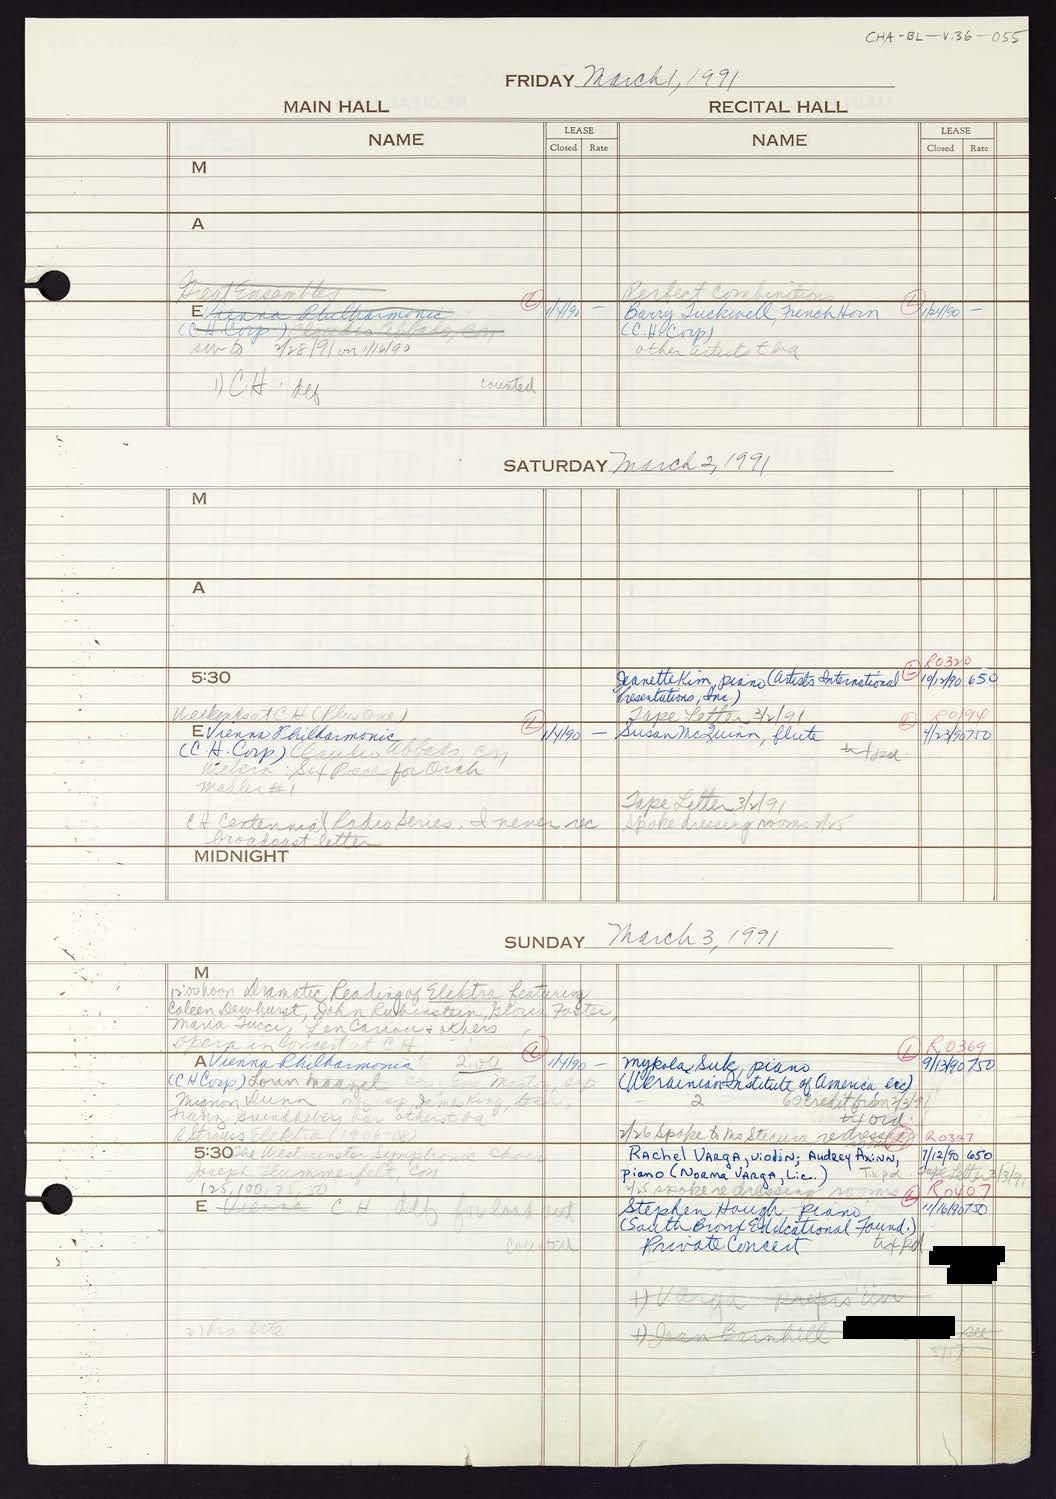 CHA-BL-V.36-055
FRIDAY March 1, 1991
MAIN HALL
RECITAL HALL
NAME
LEASE
Closed
Rate
NAME
LEASE
Closed
Rate
M
A
Great Ensembles
E Vienna Philharmonic
(C H Corp) Claudio Abbado, con
L
1/4/90 —
2/28/91 on 1/16/90
1) C H def
counted
Perfect Combinations
Barry Tuckwell, French Horn
L
1/24/90 —
(C.H. Corp)
other artists tba
SATURDAY March 2, 1991
M
A
5:30
R0320
Jeanette Kim, piano (Artists International
L
10/12/90 650
Presentations, Inc.)
Tape Letter 3/2/91
Weekends at C H (Plus One)
E Vienna Philharmonic
L
1/4/90 —
(C H Corp) Claudio Abbado, con
Webern: Six Pieces for Orch
Mahler #1
R0194
Susan McQuinn, flute
L
9/23/90 750
Tape Letter 3/2/91
Spoke dressing rooms 2/25
C H Centennial Radio Series. I never rec
broadcast letter
MIDNIGHT
SUNDAY March 3, 1991
M
12:00 noon Dramatic Reading of Elektra featuring
Coleen Dewhurst, John Rubinstein, Gloria Foster,
Maria Tucci, Len Cariou + others
Opera in Concert at C H
A Vienna Philharmonic 2:00
L
1/4/90 —
(C H Corp) Lorin Maazel con Eva Marton, sop
Mignon Dunn James King, ten,
Franz Grundheber bar others tba
R Strauss Elektra
R0369
Mykola Suk, piano
L
9/13/90 750
(Ukrainian Institute of America Inc)
2
60 credit from 2/3/91
2/26 Spoke to Ms Stecura re dress
5:30 The Westminster Symphonic Choir
Joseph Flummerfelt, Con
125, 100, 75, 50
R0397
Rachel Varga, violin; Audrey Axinn,
7/12/90 650
piano (Norma Varga, Lic.)
Tape Letter 3/3/91
spoke re dressing rooms
R0407
E Vienna C H def for load out
counted
Stephen Hough piano
11/16/90 750
(South Bronx Educational Found.)
Private Concert
1) Varga
1) Jean Barnhill
see